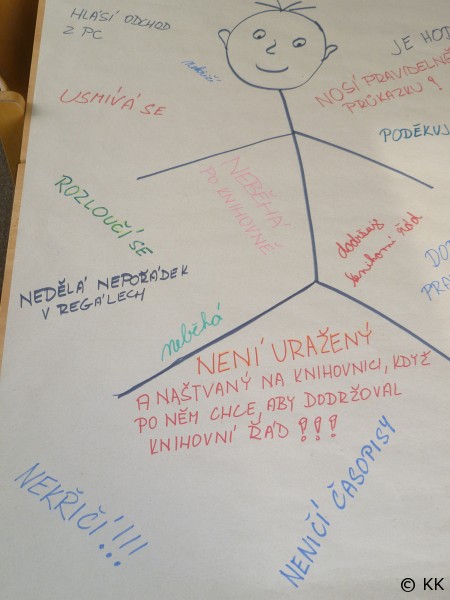 HLÁSÍ ODCHOD
Z PC
JE HOD
NOSÍ PRAVIDELNĚ
PRŮKAZKU!
USMÍVÁ SE
nekřičí
PODĚKUJ
NEBĚHÁ
PO KNIHOVNĚ
ROZLOUČÍ SE
dodržuje
knihovní řád
NEDĚLÁ NEPOŘÁDEK
V REGÁLECH
DO
PRAV
neběhá
NENÍ URAŽENÝ
A NAŠTVANÝ NA KNIHOVNICI, KDYŽ
PO NĚM CHCE, ABY DODRŽOVAL
KNIHOVNÍ ŘÁD!!!
NEKŘIČÍ!!!
NENIČÍ ČASOPISY
© KK